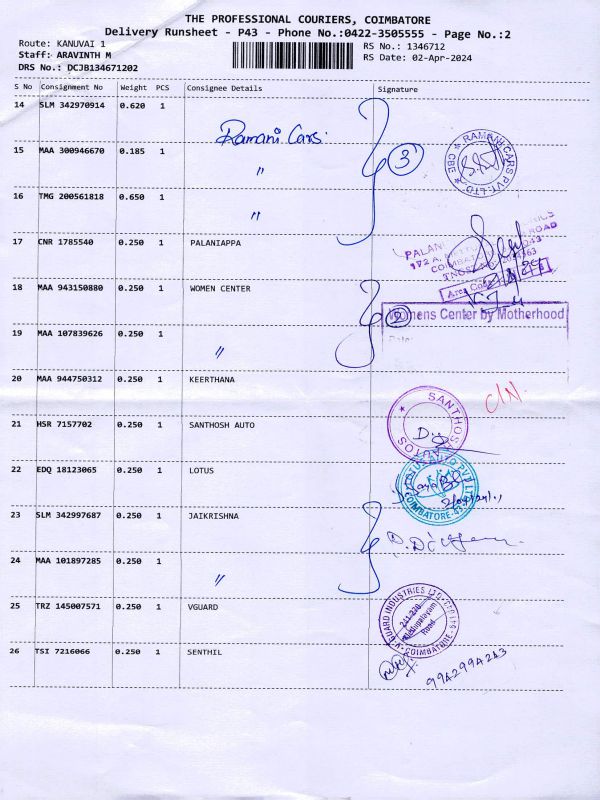 THE PROFESSIONAL COURIERS, COIMBATORE
Delivery Runsheet - P43 - Phone No.:0422-3505555 - Page No.:2
Route: KANUVAI 1
RS No.: 1346712
Staff: ARAVINTH M
RS Date: 02-Apr-2024
DRS No.: DCJB134671202
S No Consignment No Weight PCS Consignee Details Signature
14 SLM 342970914 0.620 1
Ramani Cars.
15 MAA 300946670 0.185 1 〃 3
RAMANI CARS PVT. LTD. CBE
16 TMG 200561818 0.650 1 〃
17 CNR 1785540 0.250 1 PALANIAPPA
PALANI
ROAD
18 MAA 943150880 0.250 1 WOMEN CENTER
2 Womens Center by Motherhood
19 MAA 107839826 0.250 1 〃
20 MAA 944750312 0.250 1 KEERTHANA
C/N.
21 HSR 7157702 0.250 1 SANTHOSH AUTO
SANTHOSH AUTOS
22 EDQ 18123065 0.250 1 LOTUS
COIMBATORE
23 SLM 342997687 0.250 1 JAIKRISHNA
24 MAA 101897285 0.250 1 〃
25 TRZ 145007571 0.250 1 VGUARD
V-GUARD INDUSTRIES LTD. COIMBATORE
Mettupalayam
Road
26 TSI 7216066 0.250 1 SENTHIL
9942994243